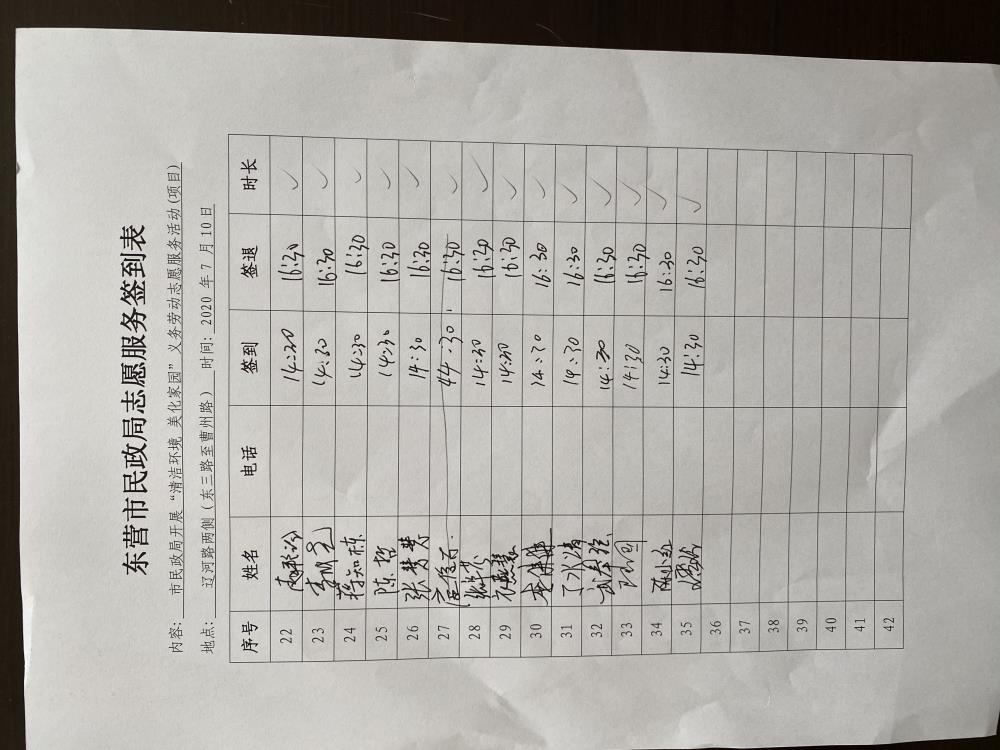 东营市民政局志愿服务签到表
内容: 市民政局开展“清洁环境 美化家园”义务劳动志愿服务活动(项目)
地点: 辽河路两侧（东三路至曹州路） 时间: 2020 年 7 月 10 日
序号 姓名 电话 签到 签退 时长
22 14:30 16:30 ✓
23 14:30 16:30 ✓
24 蒋知栋 14:30 16:30 ✓
25 陈哲 14:30 16:30 ✓
26 张梦梦 14:30 16:30 ✓
27 16:30 ✓
28 14:30 16:30 ✓
29 14:30 16:30 ✓
30 14:30 16:30 ✓
31 14:30 16:30 ✓
32 14:30 16:30 ✓
33 14:30 16:30 ✓
34 14:30 16:30 ✓
35 14:30 16:30 ✓
36
37
38
39
40
41
42